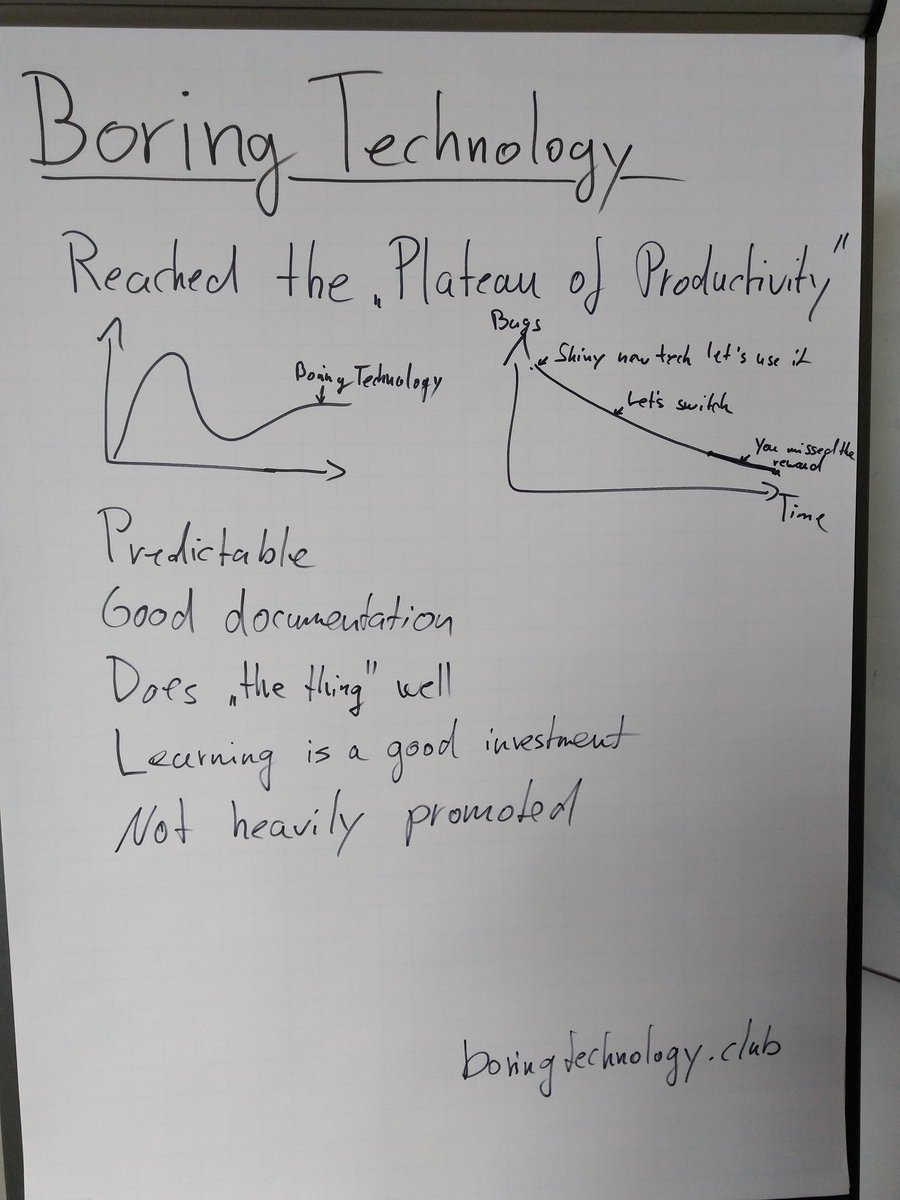 Boring Technology
Reached the „Plateau of Productivity"
Boring Technology
Bugs
Shiny new tech let's use it
Let's switch
You missed the
reward
Time
Predictable
Good documentation
Does „the thing" well
Learning is a good investment
Not heavily promoted
boringtechnology.club